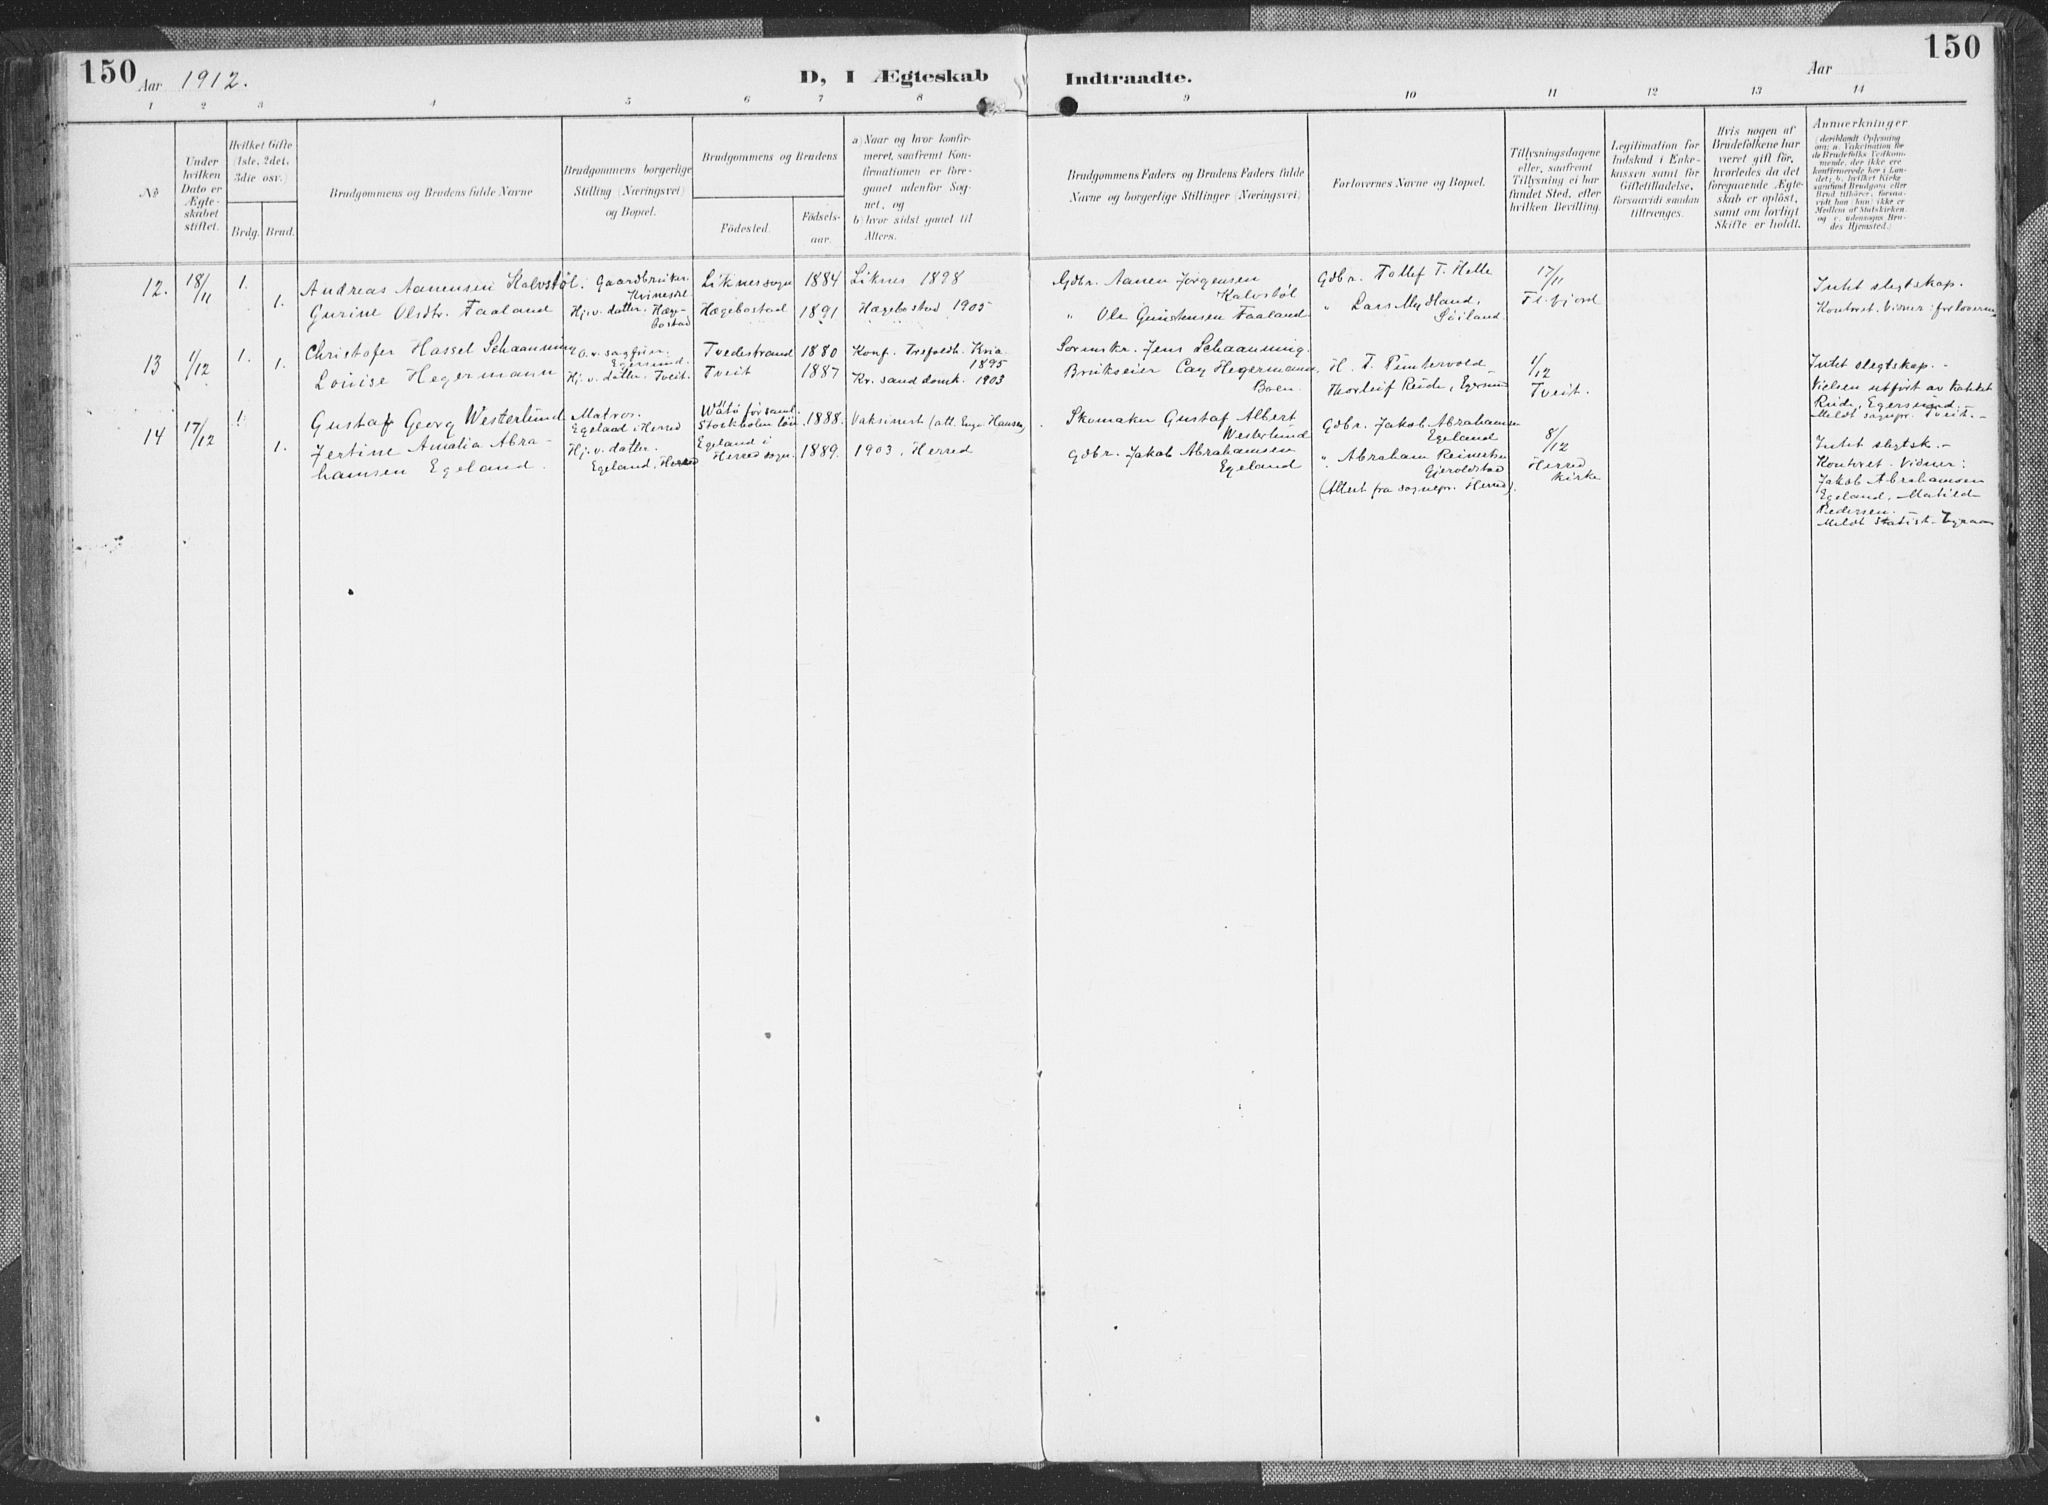 150 Aar 1912. D, I Ægteskab Indtraadte. Aar 150
1 2 3 4 5 6 7 8 9 10 11 12 13 14
No
Under hvilken Dato er Ægteskabet stiftet.
Hvilket Gifte (1ste, 2det, 3die osv.)
Brdg. Brud.
Brudgommens og Brudens fulde Navne
Brudgommens borgerlige Stilling (Næringsvei) og Bopæl.
Brudgommens og Brudens
Fødested. Fødselsaar.
a) Naar og hvor konfirmeret, saafremt Konfirmationen er foregaaet udenfor Sognet, og
b) hvor sidst gaaet til Alters.
Brudgommens Faders og Brudens Faders fulde Navne og borgerlige Stillinger (Næringsvei)
Forlovernes Navne og Bopæl.
Tillysningsdagene eller, saafremt Tillysning ei har fundet Sted, efter hvilken Bevilling.
Legitimation for Indskud i Enkekassen samt for Giftetilladelse, forsaavidt saadan tiltrænges.
Hvis nogen af Brudefolkene har været gift før, hvorledes da det foregaaende Ægteskab er opløst, samt om lovligt Skifte er holdt.
Anmerkninger (deriblandt Oplysning om; a. Vakcination for de Brudefolks Vedkommende, der ikke ere konfirmerede her i Landet; b. hvilket Kirkesamfund Brudgom eller Brud tilhører, forsaavidt han (hun) ikke er Medlem af Statskirken, og c. udensogns Brudes Hjemsted.)
12. 18/11 1. Andreas Aanensen Kalvstøl. Gaardbruker Kvinesdal Liknes sogn 1884 Liknes 1898 Gdbr. Aanen Jørgensen Kalvstøl Gdbr. Tollef T. Helle 17/11 Fl.fjord Intet slegtskap.
1. Gurine Olsdtr. Faaland Hj.v. datter. Hægebostad Hægebostad 1891 Hægebostad 1905 " Ole Faaland " Lars Mydland, Kontoret. Vidner: forloverne
13 1/12 1. Christofer Hassel Schaanning Egersund Tvedestrand 1880 Konf. Trefoldh. Kria. 1895 Jens Schaanning. H. T. 1/12 Tveit. Intet slegtskap.
1. Louise Hegermann Hj.v. datter. Tveit. Tveit 1887 Kr.sand domk. 1903 Brukseier Cay Hegermann, Boen. Thorleif Rude, Egersund Vielsen utført av Kateket Rude, Egersund.
Meldt sogepr. Tveit.
14 17/12 1. Gustaf Georg Westerlund Matros. Egeland i Herred Wätö församl. Stockholms län 1888. Vaksinert (att. Hansen) Skomaker Gustaf Albert Westerlund Gdbr. Jakob Abrahamsen Egeland 8/12 Herred kirke Intet slegtsk.
1. Jertine Amalia Abrahamsen Egeland. Hj.v. datter. Egeland, Herred Egeland i Herred sogn. 1889. 1903, Herred Gdbr. Jakob Abrahamsen Egeland " Abraham Reinertsen Gjeroldstad Kontoret. Vidner:
(Attest fra sognepr. Herred). Jakob Abrahamsen
Egeland, Matild
Pedersen.
Meldt Statist.